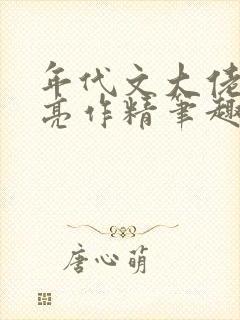 年代文大佬
亮作精筆趣
唐心萌